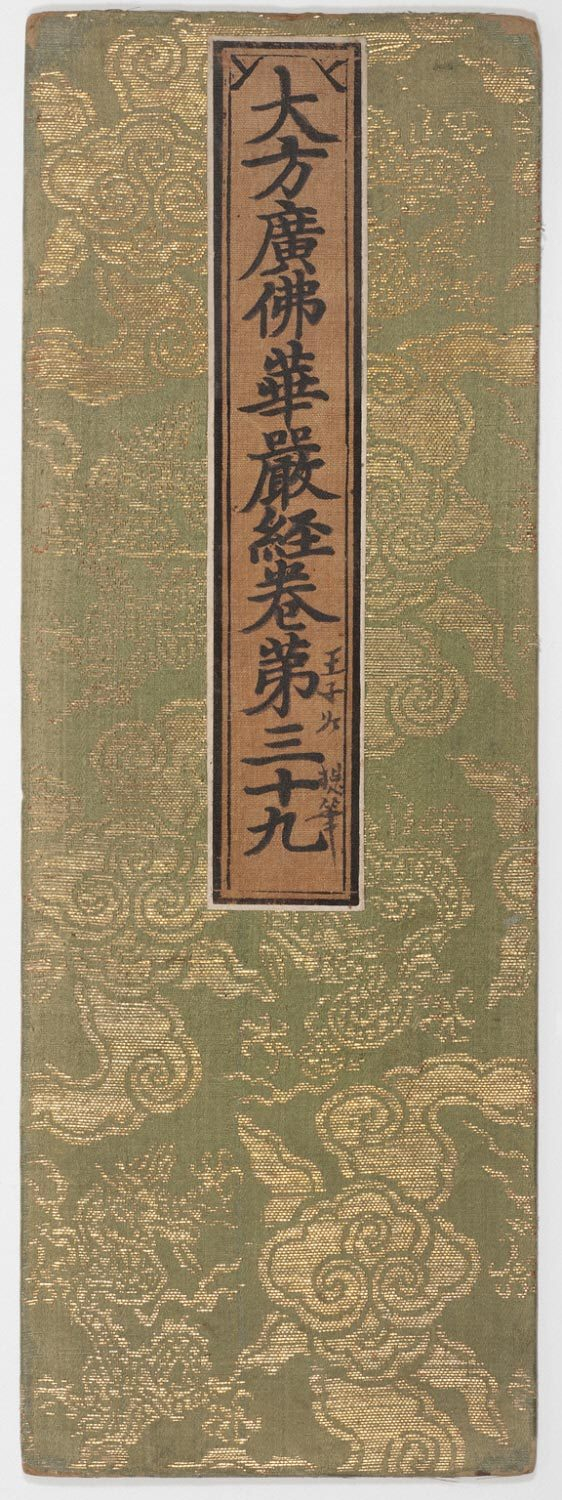 大方廣佛華嚴経卷第三十九
王子
筆